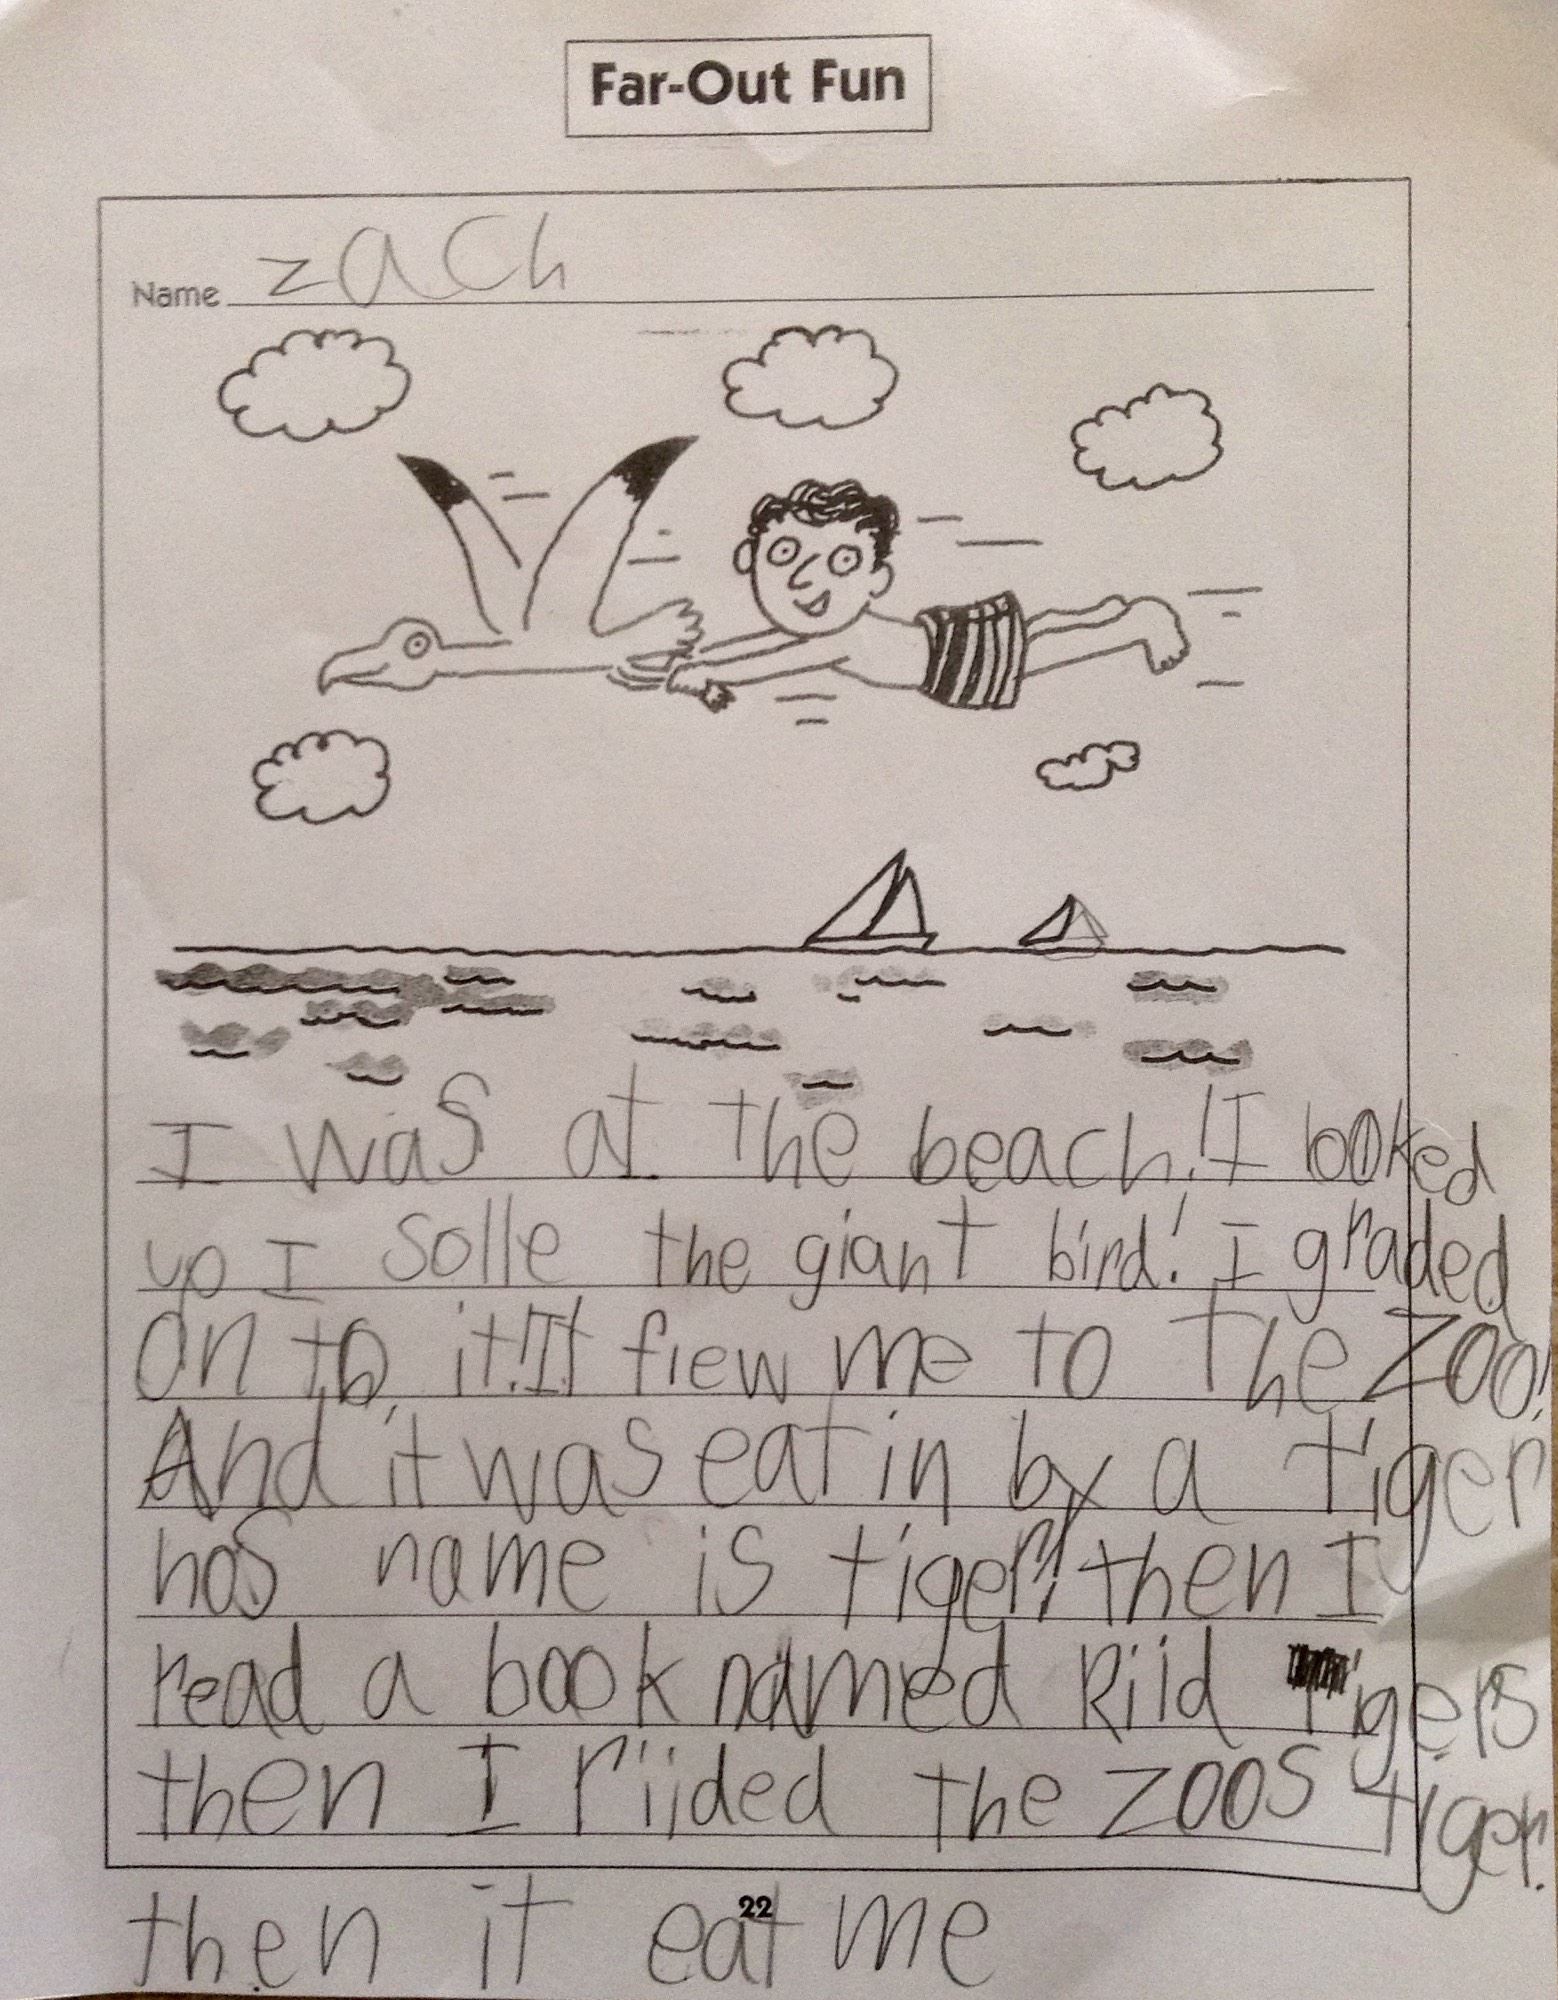 Far-Out Fun
Name zach
I was at the beach! I looked
up I solle the giant bird! I graded
on to it! It flew me to the zoo!
And it was eat in by a tiger
hos name is tiger! then I
read a book named Riid Tigers
then I riided the zoos tiger.
22
then it eat me